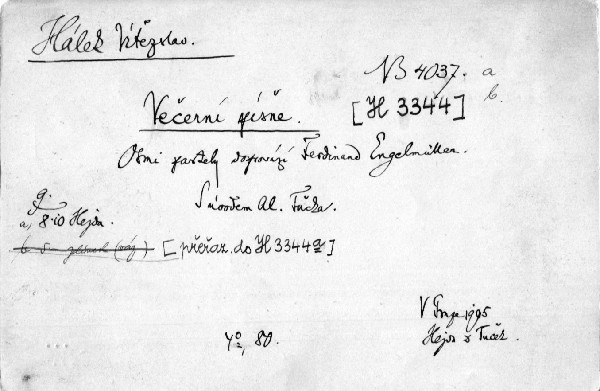 Hálek Vítězslav.
NB 4037. a
b.
[H 3344]
Večerní písně.
Osmi pastely doprovází Ferdinand Engelmüller.
S úvodem Al. Tučka.
9.
a, 8·10 Hejda.
[přeřaz. do H 3344a]
V Praze 1905
Hejda & Tuček.
4°, 80.